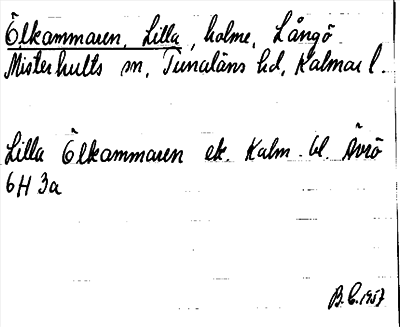 Ölkammaren, Lilla, holme, Långö
Misterhults sn, Tunaläns hd, Kalmar l.
Lilla Ölkammaren ek. Kalm. bl. Ävrö
6H 3a
B.C. 1957